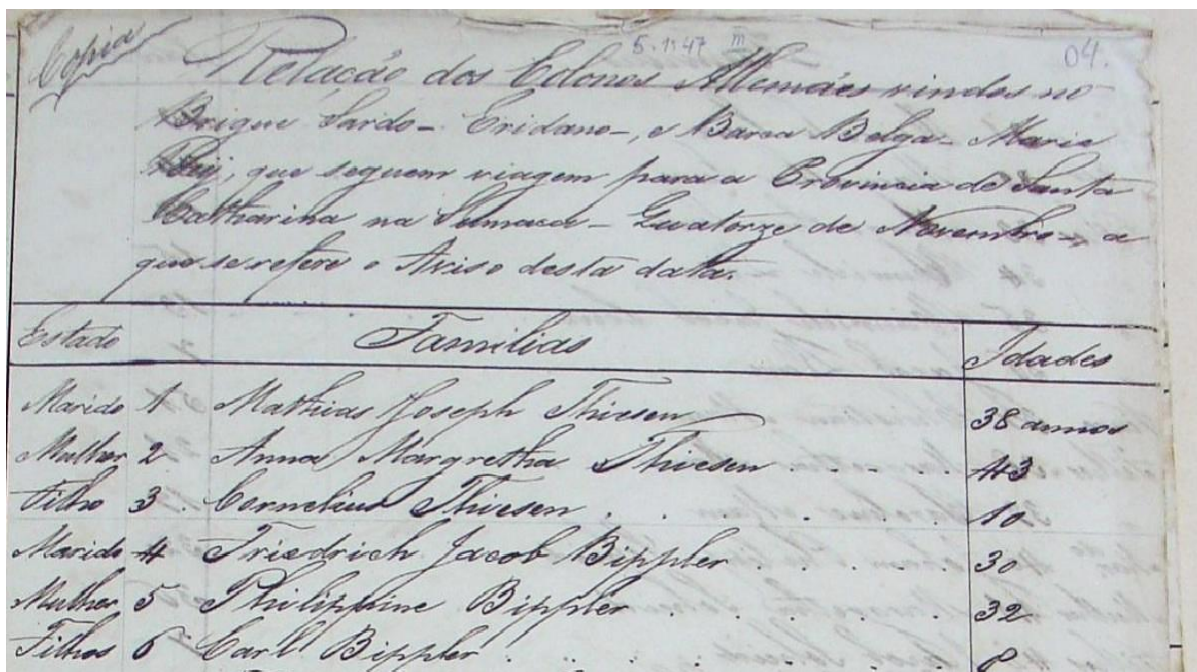 Copia
5-11-47 m
04.
Relação dos Colonos Allemães vindos no
Brigue Sardo - Eridano -, e Barca Belga - Marie
que seguem viagem para a Provincia de Santa
Catharina na Sumaca - Quatorze de Novembro -, a
que se refere o Aviso desta data.
Estado Familias Idades
Marido 1 Mathias Joseph Thiesen 38 annos
Mulher 2 Anna Margretha Thiesen 43
Filho 3 Cornelius Thiesen 10
Marido 4 Friedrich Jacob Bippler 30
Mulher 5 Philippine Bippler 32
Filhos 6 Carl Bippler